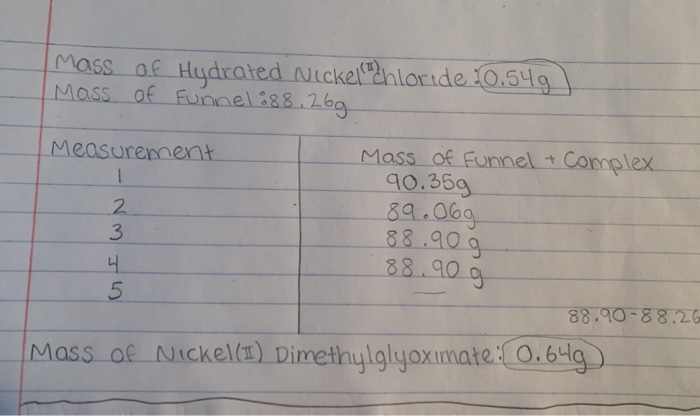 Mass of Hydrated Nickel(II) Chloride: 0.54g
Mass of Funnel: 88.26g
Measurement Mass of Funnel + Complex
1 90.35g
2 89.06g
3 88.90g
4 88.90g
5 —
88.90-88.26
Mass of Nickel(II) Dimethylglyoximate: 0.64g